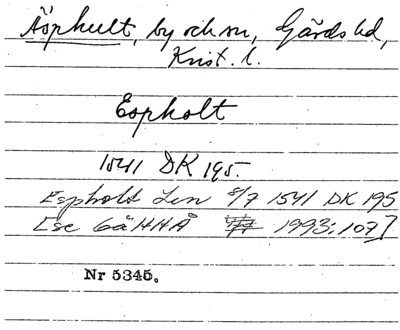 Äsphult, by och sn, Gärds hd,
Krist. l.
Espholt
1541 DK 195.
Espholt Len 8/7 1541 DK 195
[se GäHHÅ 1993:107]
Nr 5345.